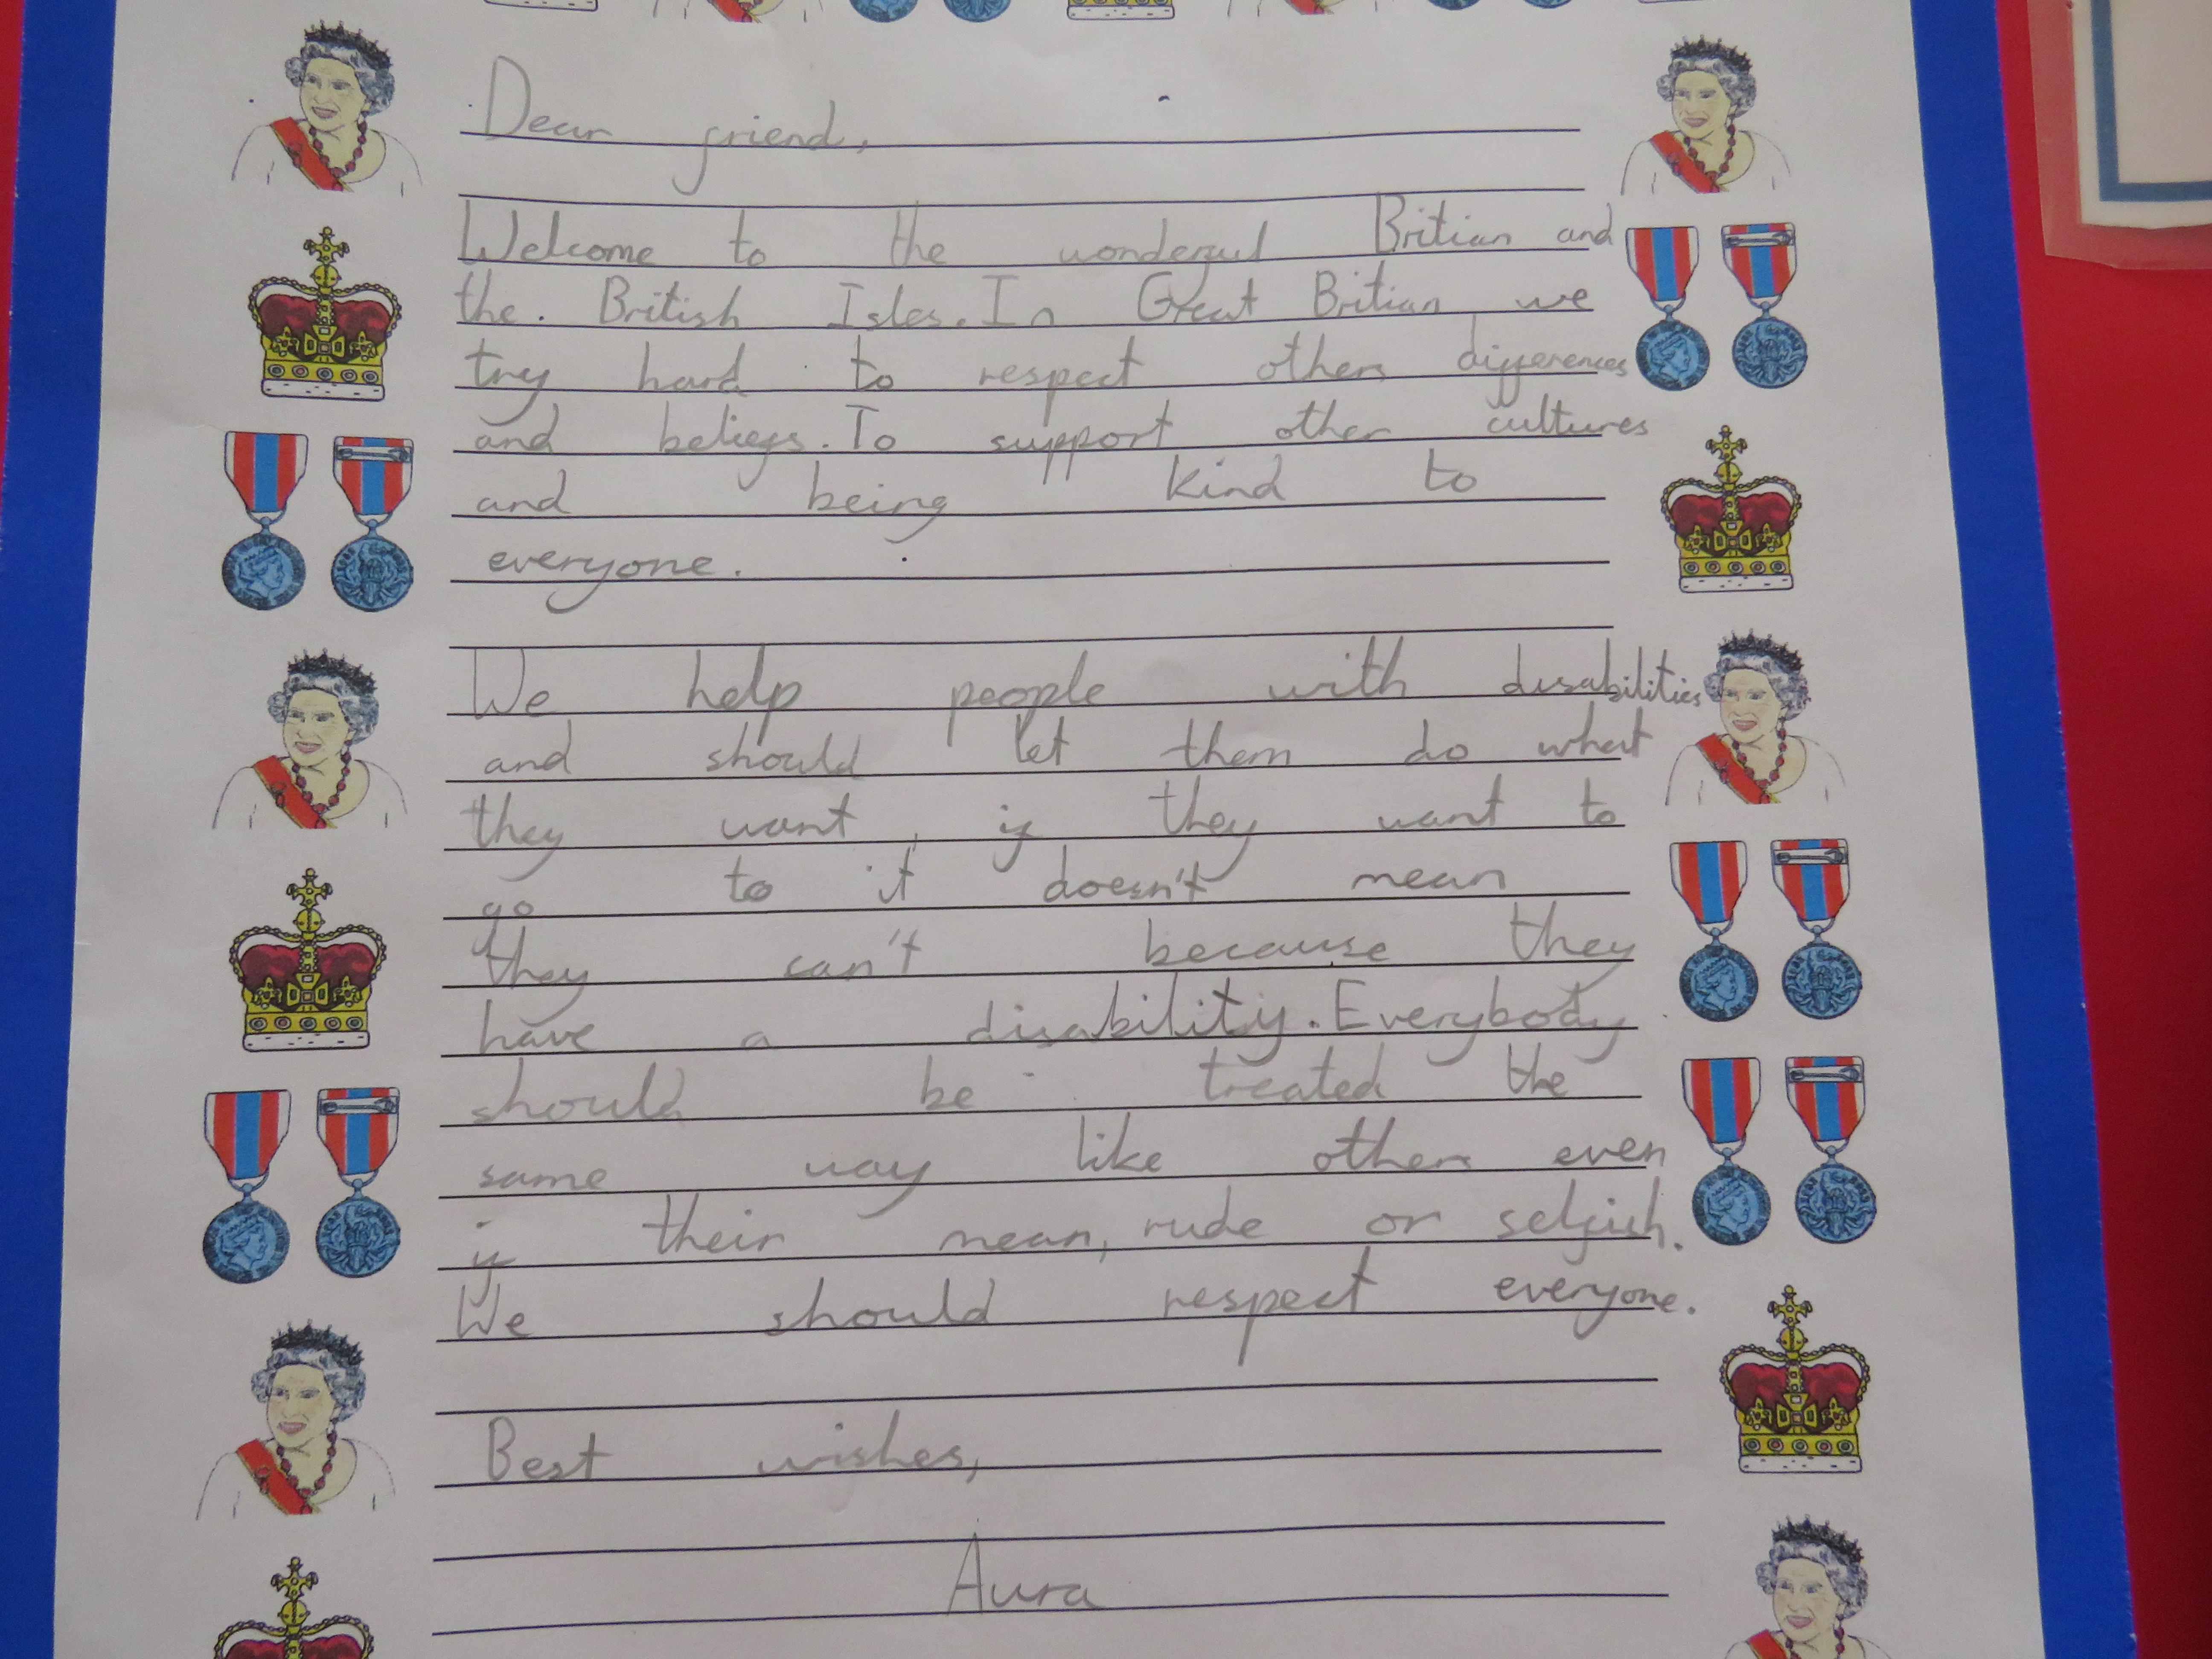 Dear friend,
Welcome to the wonderful Britian and
the. British Isles. In Great Britian we
try hard to respect others differences
and beliefs. To support other cultures
and being kind to
everyone.
We help people with disabilities
and should let them do what
they want, if they want to
go to it doesn't mean
they can't because they
have a disability. Everybody
should be treated the
same way like others even
if their mean, rude or selfish.
We should respect everyone.
Best wishes,
Aura